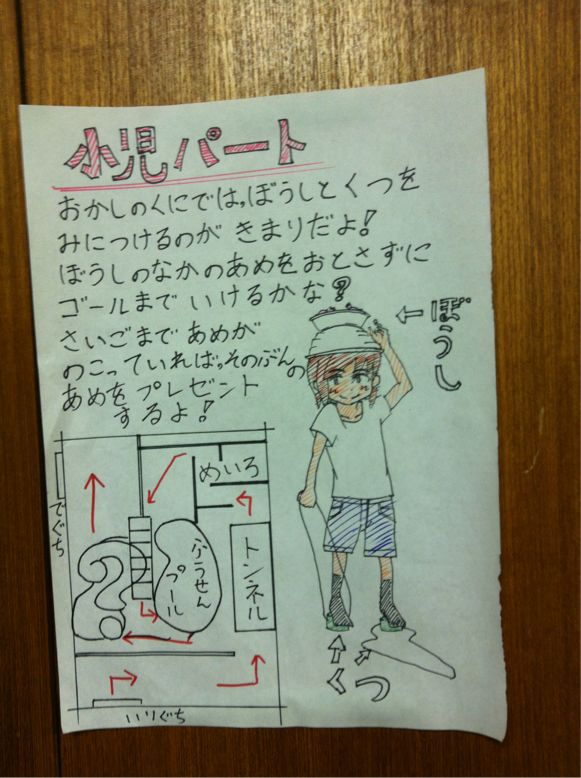 小児パート
おかしのくにでは、ぼうしとくつを
みにつけるのが きまりだよ!
ぼうしのなかのあめをおとさずに
ゴールまで いけるかな?
さいごまで あめが
のこっていれば、そのぶんの
あめをプレゼント
するよ!
ぼうし
めいろ
でぐち
ふうせん
プール
トンネル
?
くつ
いりぐち